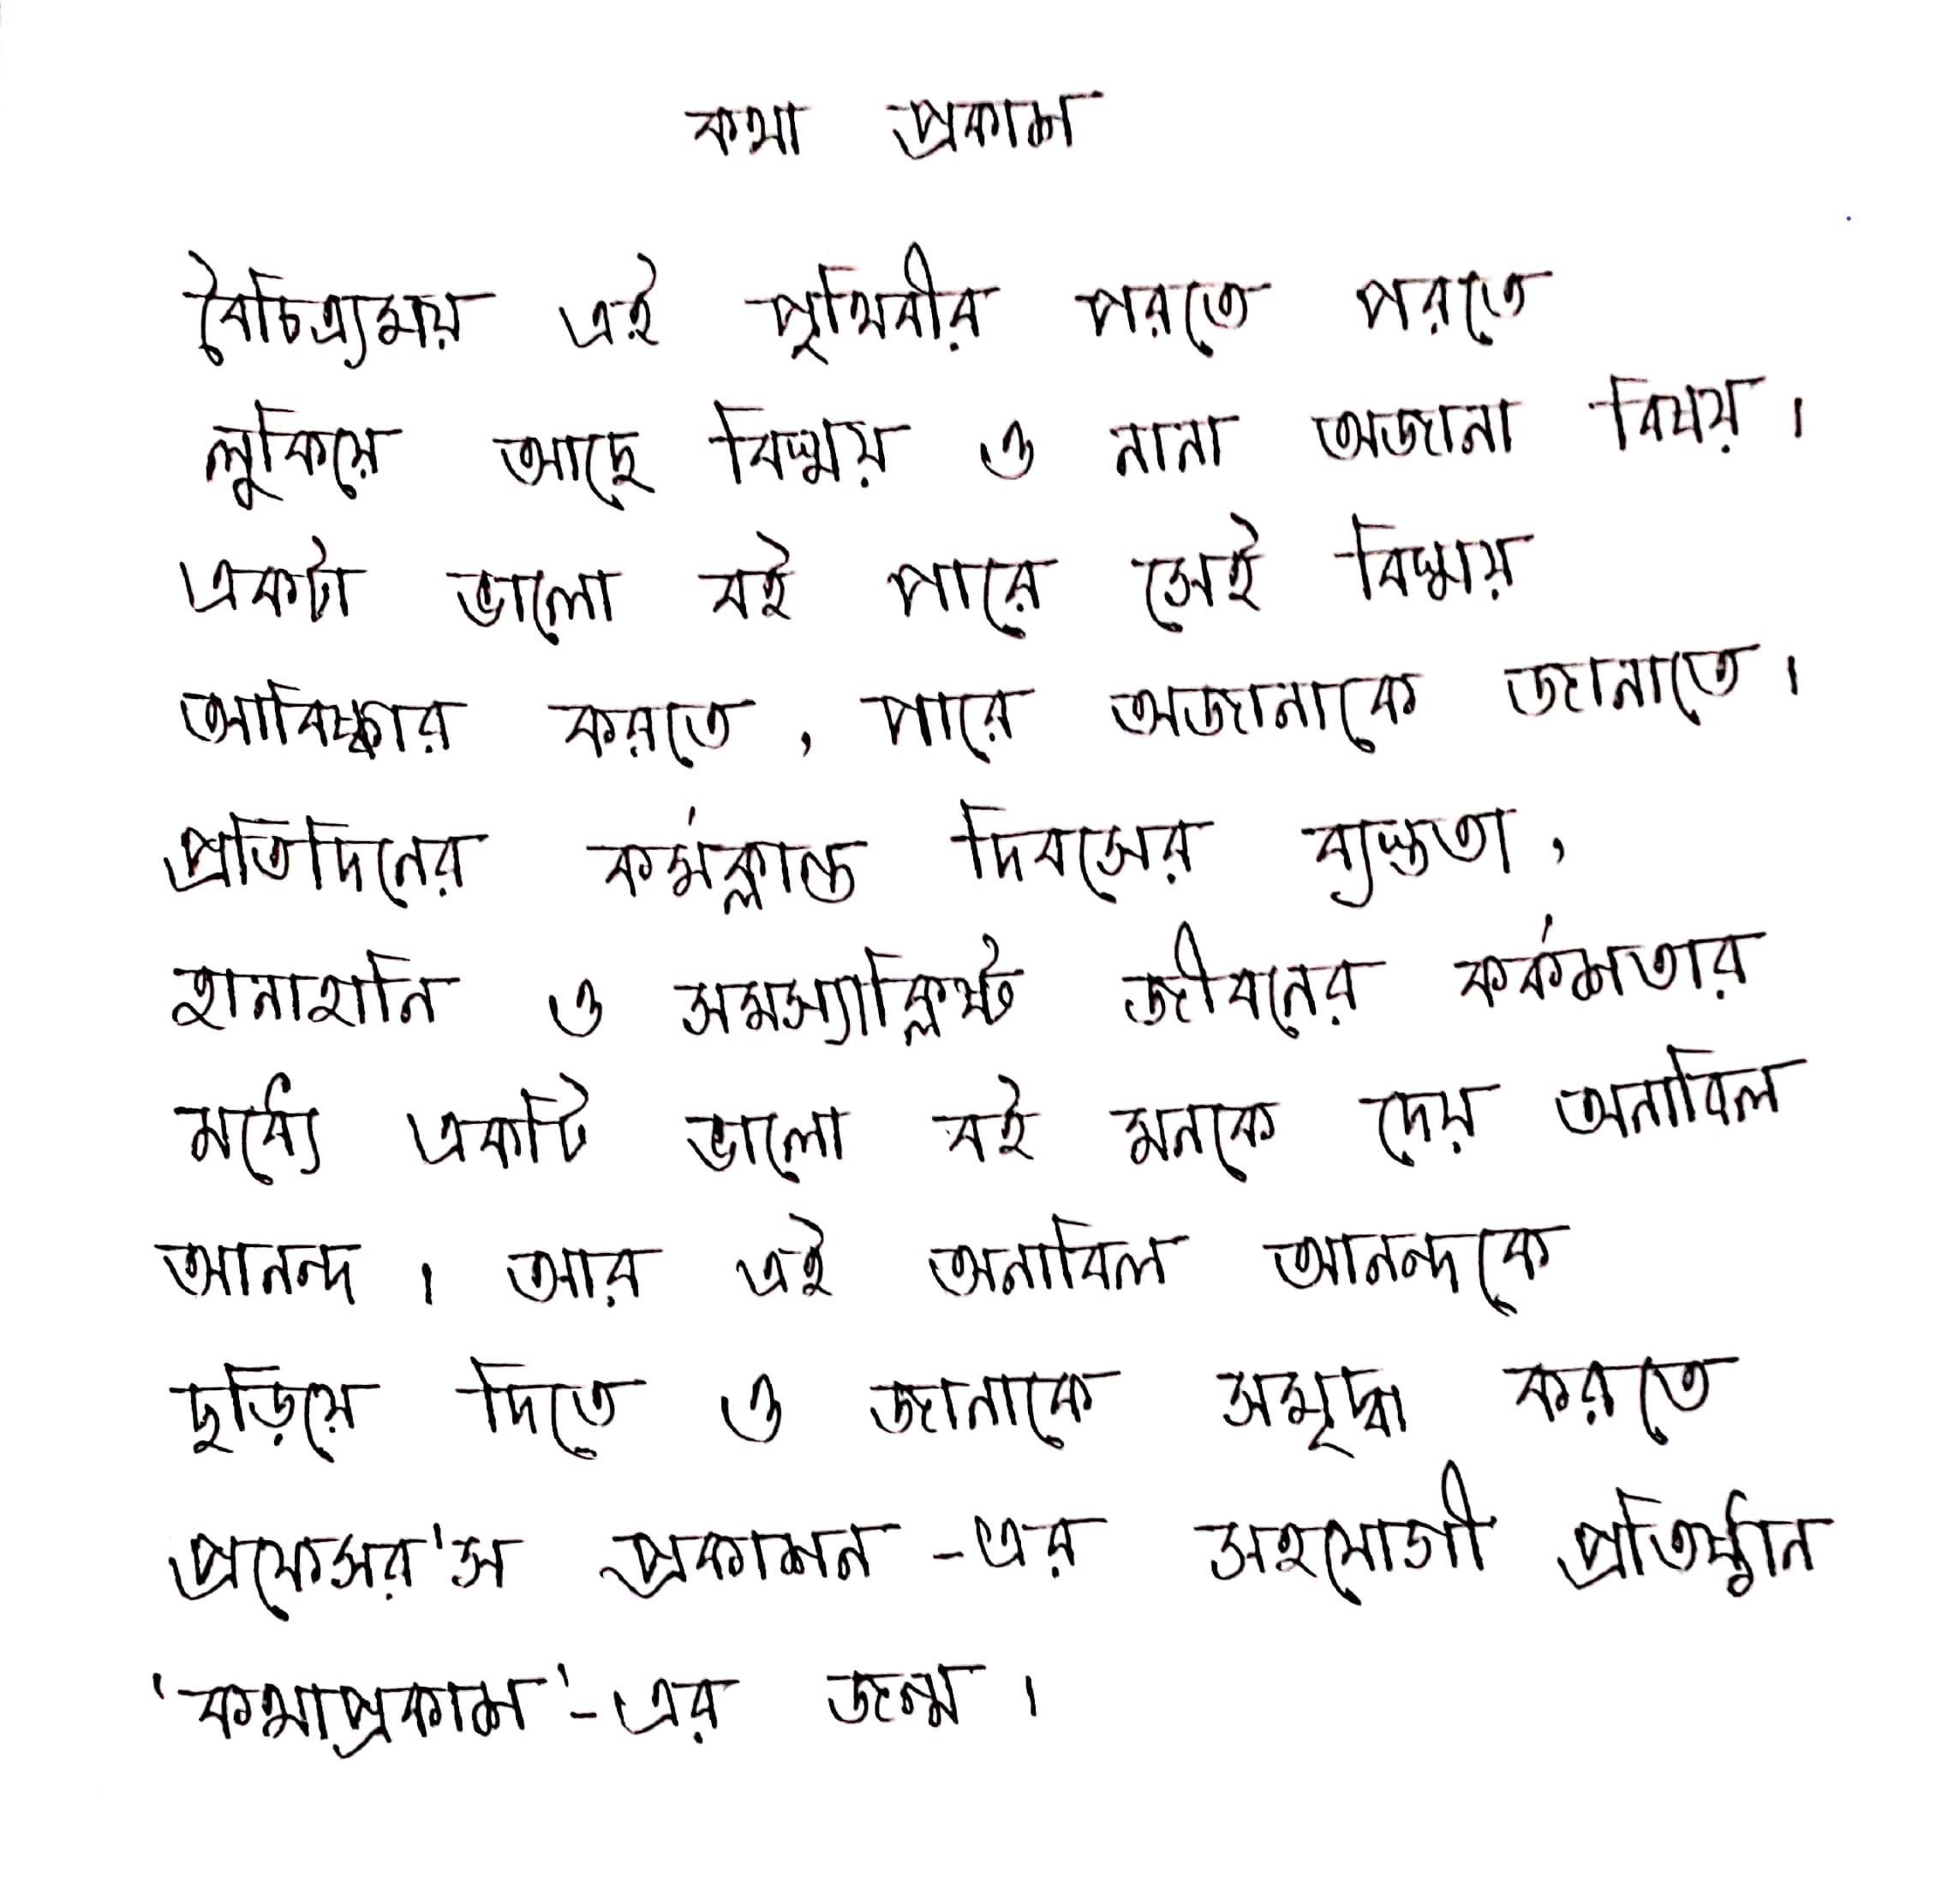 কথা প্রকাশ
বৈচিত্র্যময় এই পৃথিবীর পরতে পরতে
লুকিয়ে আছে বিস্ময় ও নানা অজানা বিষয়।
একটা ভালো বই পারে সেই বিস্ময়
আবিষ্কার করতে, পারে অজানাকে জানাতে।
প্রতিদিনের কর্মক্লান্ত দিবসের ব্যস্ততা,
হানাহানি ও সমস্যাক্লিষ্ট জীবনের কর্কশতার
মধ্যে একটি ভালো বই মনকে দেয় অনাবিল
আনন্দ। আর এই অনাবিল আনন্দকে
ছড়িয়ে দিতে ও জানাকে সমৃদ্ধ করতে
প্রফেসর'স প্রকাশন-এর সহযোগী প্রতিষ্ঠান
'কথাপ্রকাশ'-এর জন্ম।